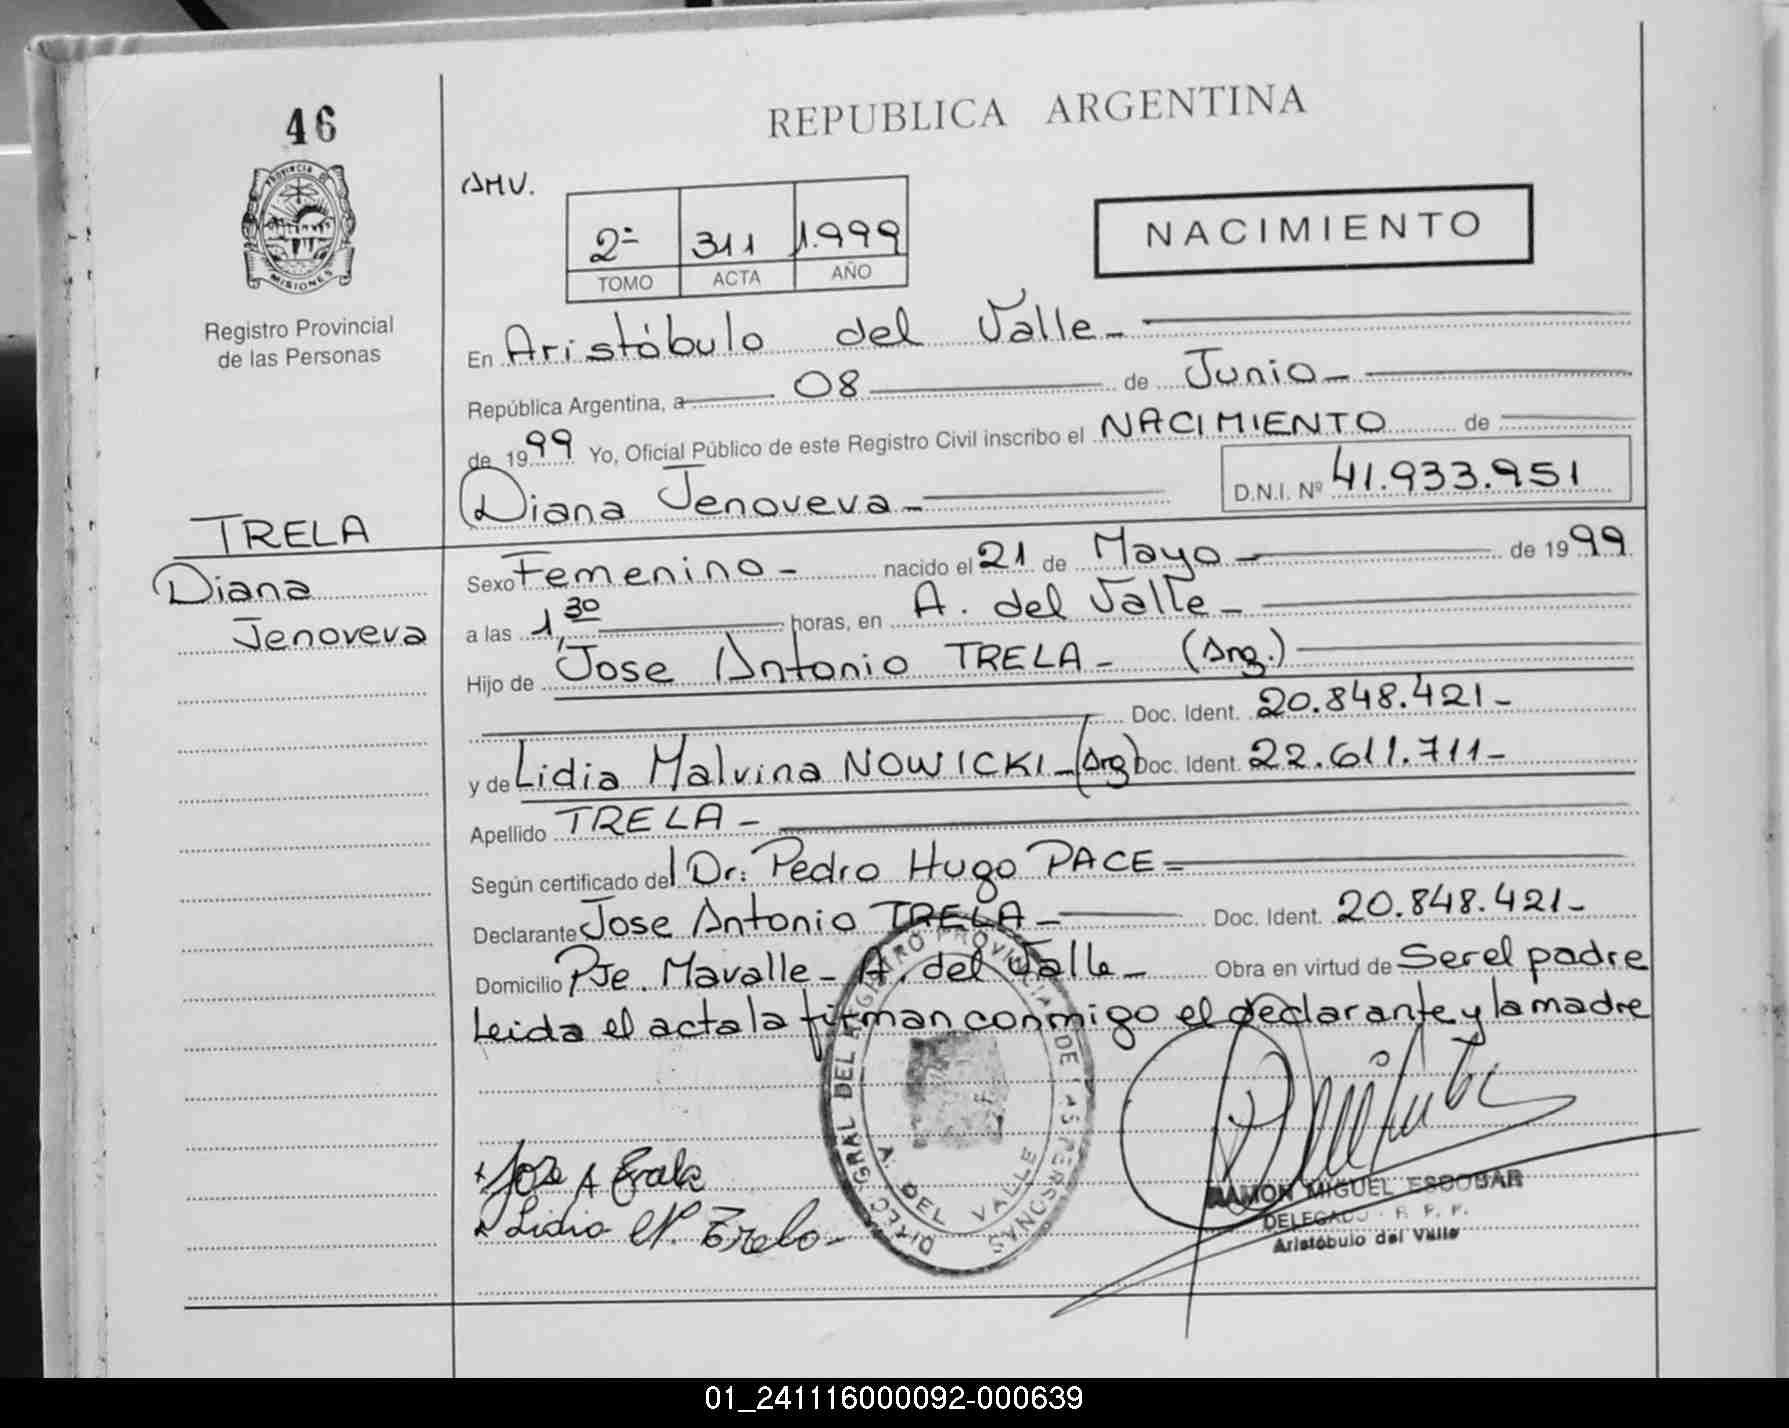 46
REPUBLICA ARGENTINA
PROVINCIA DE MISIONES
Registro Provincial
de las Personas
AMV.
2º 311 1.999
TOMO ACTA AÑO
NACIMIENTO
En Aristóbulo del Valle -
República Argentina, a 08 de Junio -
de 1999 Yo, Oficial Público de este Registro Civil inscribo el NACIMIENTO de
Diana Jenoveva - D.N.I. Nº 41.933.951
TRELA
Diana
Jenoveva
Sexo Femenino - nacido el 21 de Mayo - de 1999
a las 1,30 horas, en A. del Valle -
Hijo de Jose Antonio TRELA - (Arg.)
Doc. Ident. 20.848.421-
y de Lidia Malvina NOWICKI - (Arg) Doc. Ident. 22.611.711-
Apellido TRELA -
Según certificado del Dr. Pedro Hugo PACE =
Declarante Jose Antonio TRELA - Doc. Ident. 20.848.421-
Domicilio Pje. Mavalle - A. del Valle - Obra en virtud de Ser el padre
Leida el acta la firman conmigo el declarante y la madre
DIREC. GRAL DEL REGISTRO PROVINCIAL DE LAS PERSONAS
A. DEL VALLE
Jose A Trela
Lidia N. Trela -
RAMON MIGUEL ESCOBAR
DELEGADO - R. P. P.
Aristóbulo del Valle
01_241116000092-000639